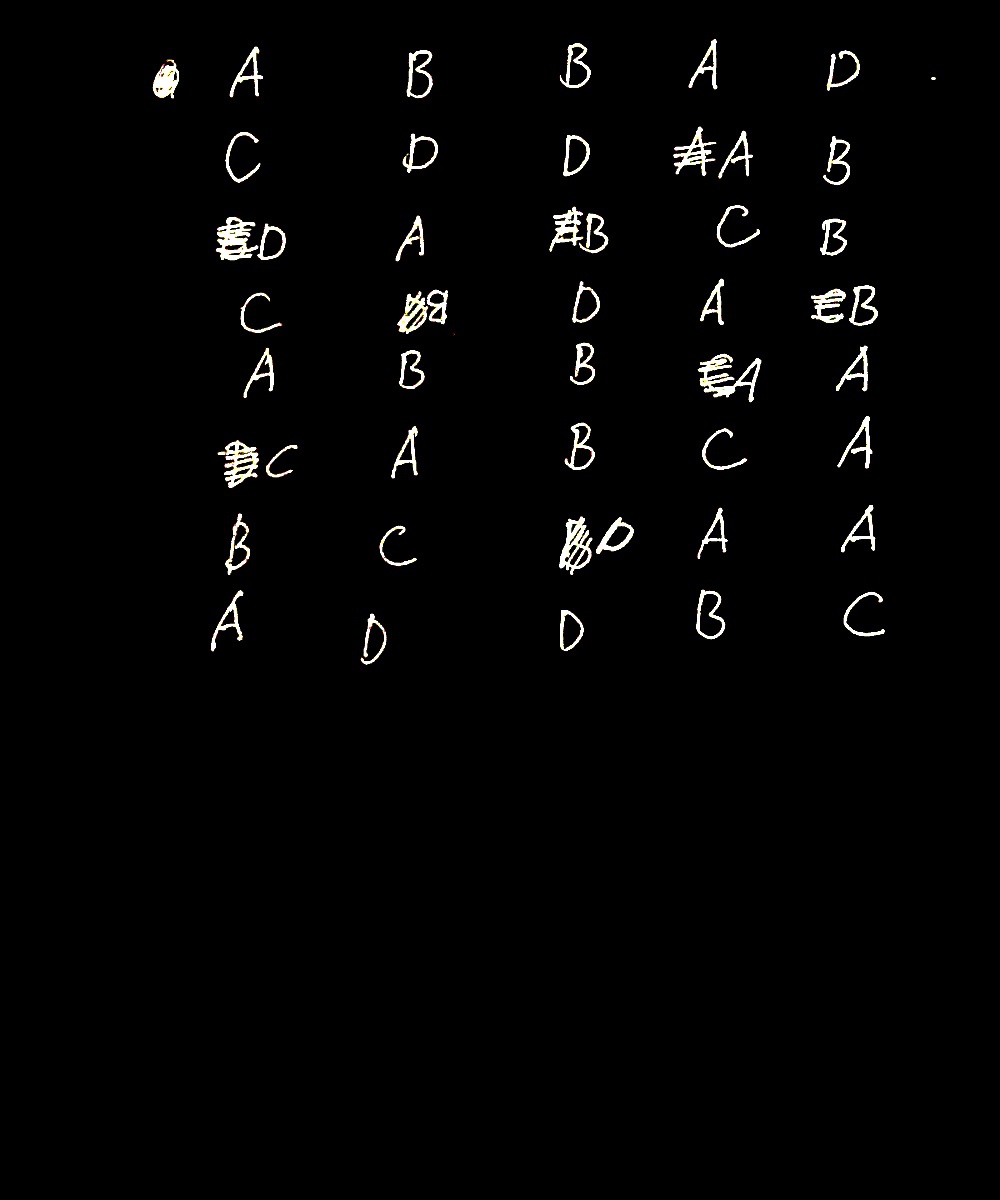 A B B A D
C D D A B
D A B C B
C B D A B
A B B A A
C A B C A
B C D A A
A D D B C